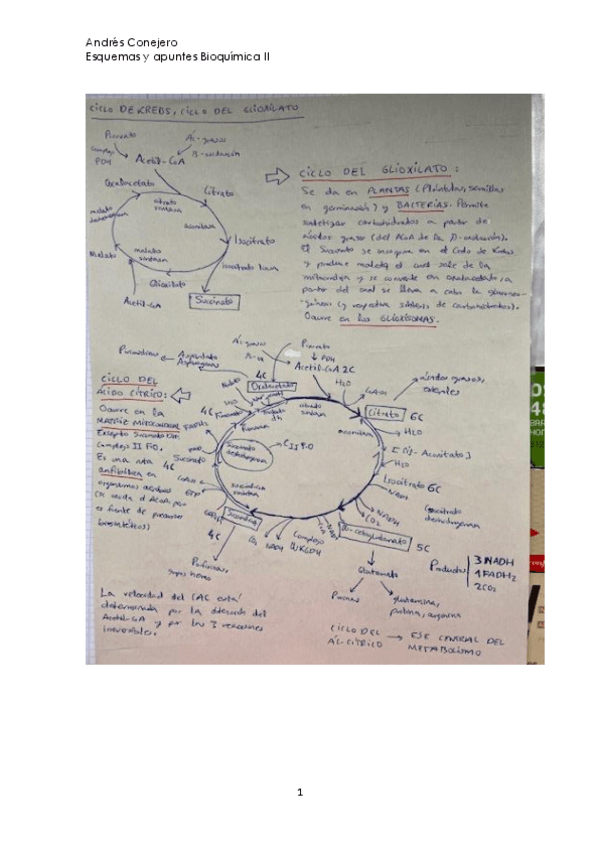 Andrés Conejero
Esquemas y apuntes Bioquímica II
CICLO DE KREBS, CICLO DEL GLIOXILATO
Piruvato
Ác. grasos
Complejo PDH
B-oxidación
Acetil-CoA
Oxalacetato
Citrato
citrato sintasa
aconitasa
Isocitrato
isocitrato liasa
Malato
malato sintasa
Glioxilato
Succinato
Acetil-CoA
CICLO DEL GLIOXILATO:
Se da en PLANTAS (Plántulas, semillas
en germinación) y BACTERIAS. Permite
sintetizar carbohidratos a partir de
ácidos grasos (del ACoA de la β-oxidación).
El Succinato se incorpora en el Ciclo de Krebs
y produce malato, el cual sale de la
mitocondria y se convierte en oxalacetato, a
partir del cual se lleva a cabo la gluconeo-
génesis (y respectiva síntesis de carbohidratos).
Ocurre en los GLIOXISOMAS.
Ác. grasos
Piruvato
PDH
Acetil-CoA 2C
Pirimidinas
Aspartato
Asparagina
4C
Oxalacetato
H2O
CoASH
ácidos grasos,
esteroles
citrato sintasa
Citrato
6C
H2O
aconitasa
[Cis-Aconitato]
H2O
Isocitrato 6C
NADH
CO2
isocitrato
deshidrogenasa
α-cetoglutarato
5C
Glutamato
Purinas
glutamina,
prolina, arginina
Complejo
αKGDH
CO2
NADH
4C
Porfirinas,
grupos hemo
Succinato
4C
GTP
Fumarato
4C
Malato
H2O
CICLO DEL
ÁCIDO CÍTRICO:
Ocurre en la
MATRIZ MITOCONDRIAL
Excepto Succinato DH
Complejo II F.O.
Es una ruta
anfibólica en
organismos aerobios
(se oxida el ACoA, pero
es fuente de precursores
biosintéticos)
Productos
3 NADH
1 FADH2
2 CO2
La velocidad del CAC está
determinada por la
Acetil-CoA y por las 3 reacciones
irreversibles.
CICLO DEL
ÁC. CÍTRICO
→ EJE CENTRAL DEL
METABOLISMO
1